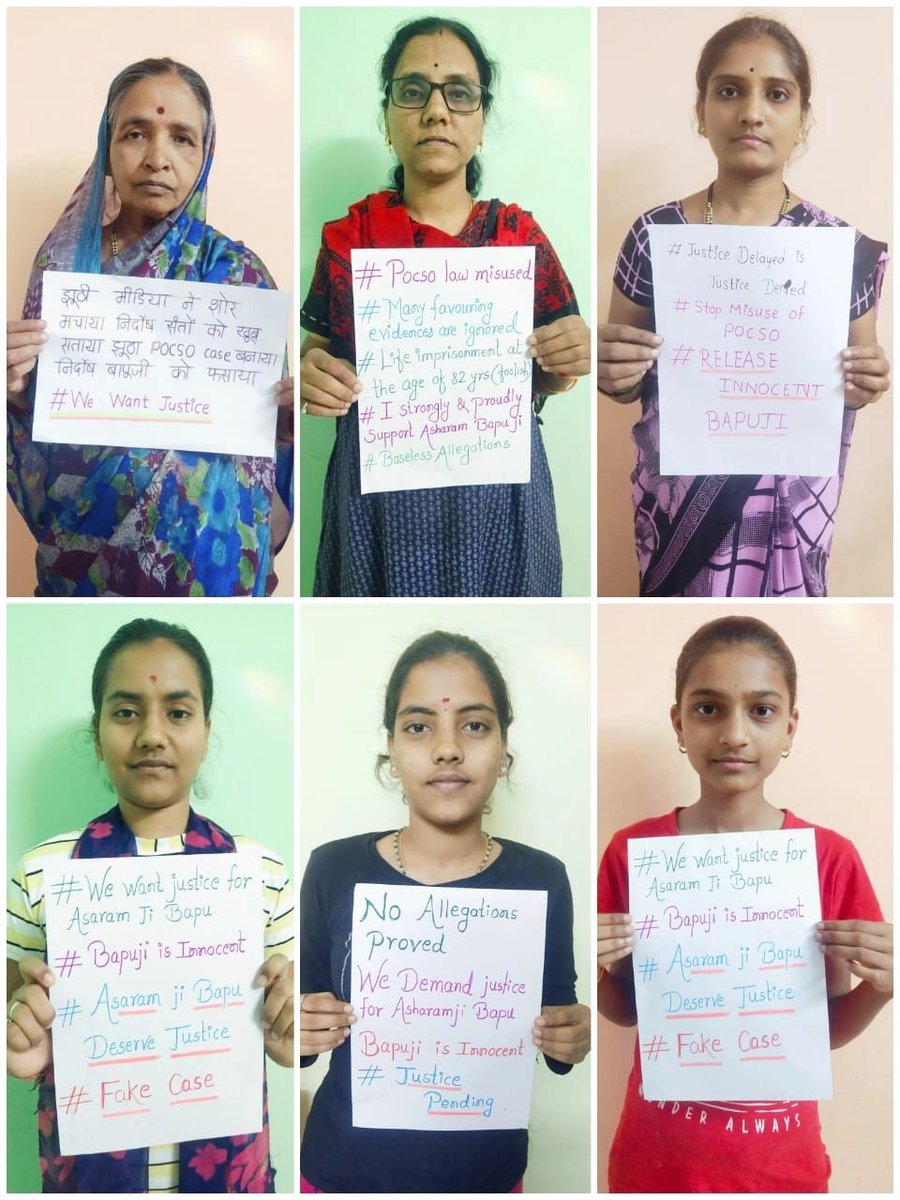 झूठी मीडिया ने शोर
मचाया निर्दोष संतों को खूब
सताया झूठा POCSO case बनाया
निर्दोष बापूजी को फसाया
#We Want Justice
# Pocso law misused
# Many favouring
evidences are ignored
# Life imprisonment at
the age of 82 yrs (foolish)
# I strongly & proudly
Support Asharam Bapu ji
# Baseless Allegations
# Justice Delayed is
Justice Denied
# Stop Misuse of
POCSO
# RELEASE
INNOCETNT
BAPUJI
# We want justice for
Asaram Ji Bapu
# Bapuji is Innocent
# Asaram ji Bapu
Deserve Justice
# Fake Case
No Allegations
Proved
We Demand justice
for Asharamji Bapu
Bapuji is Innocent
# Justice
Pending
# We want justice for
Asaram Ji Bapu
# Bapuji is Innocent
# Asaram ji Bapu
Deserve Justice
# Fake Case
NDER ALWAYS